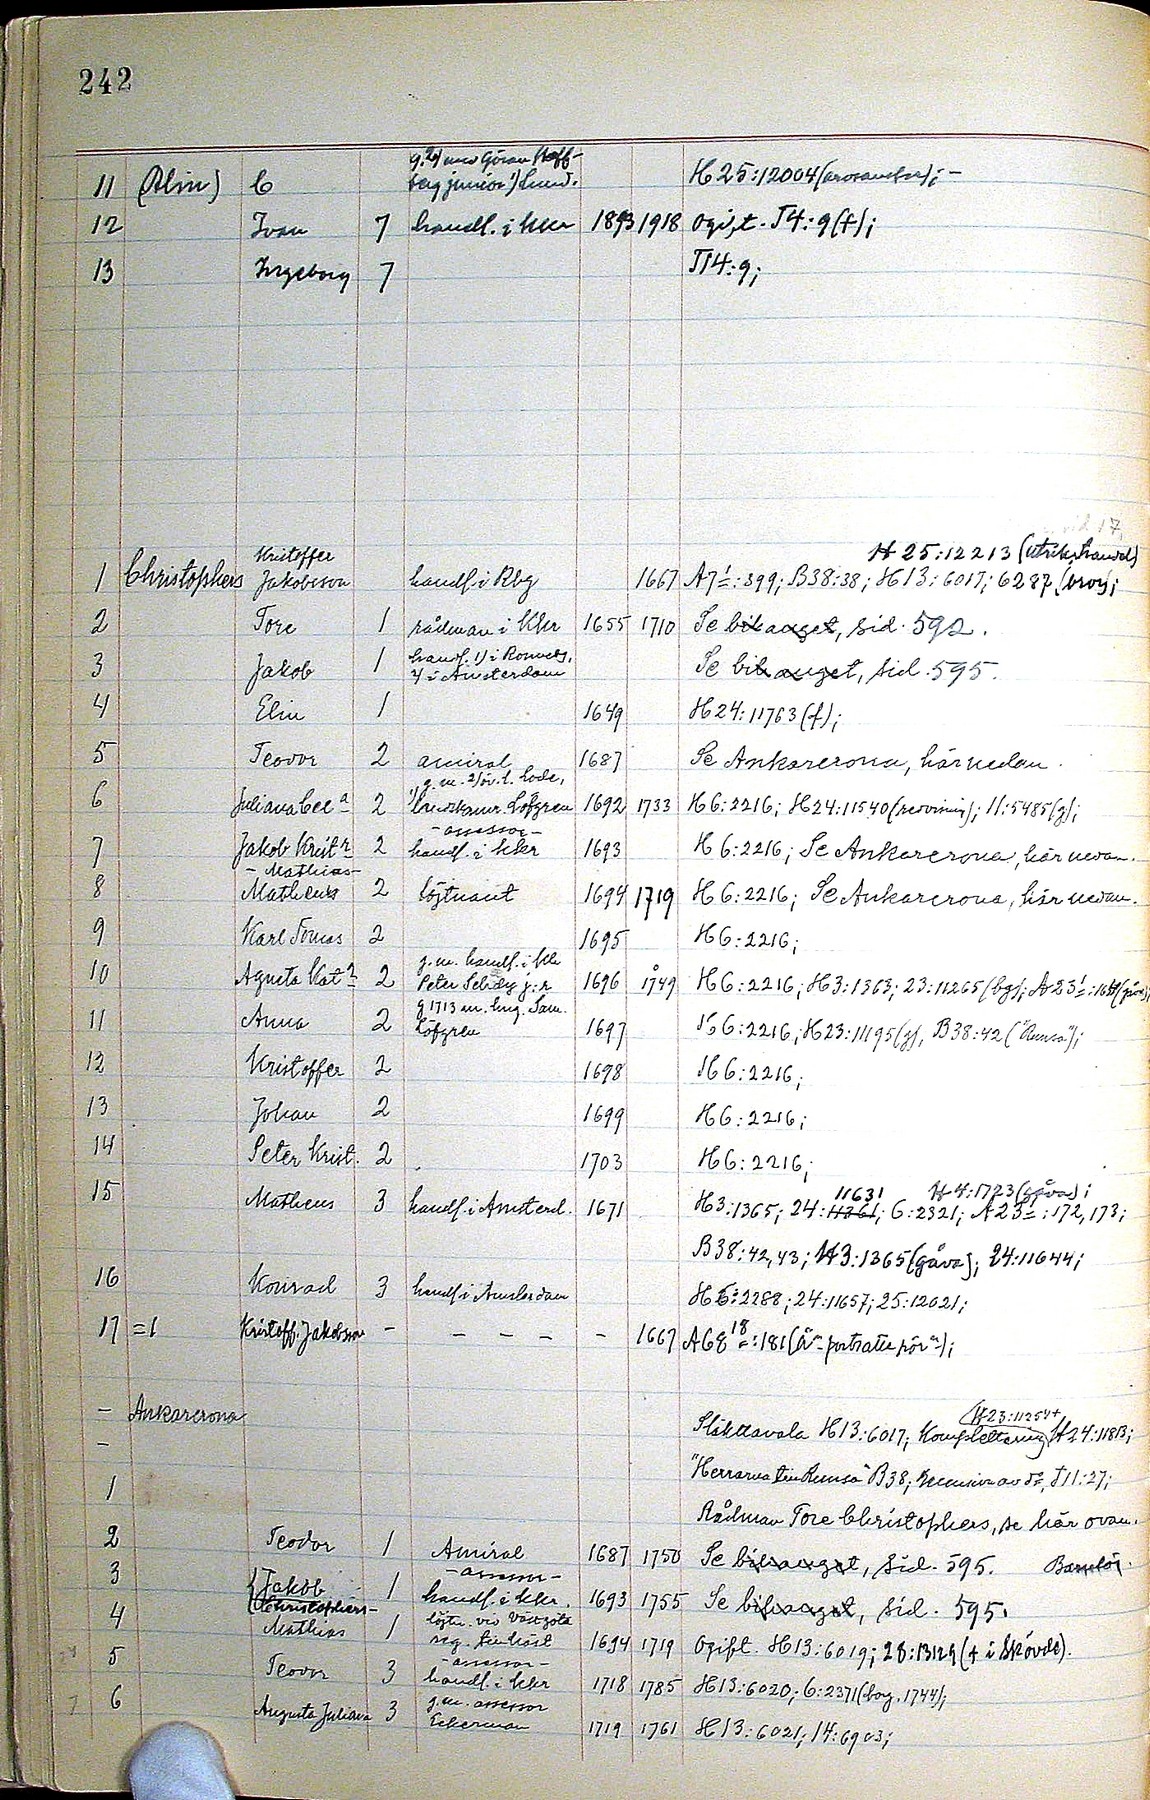 242
g. 2) med Göran Hoff-
11 (Alin) C berg junior 1) Lund. H 25:12004 ; -
12 Ivan 7 handl. i Kkr 1893 1918 Ogift. T4:9 (f);
13 Ingeborg 7 T14:9;
sid 17,
Kristoffer H 25:12213 (utrikeshandel)
1 Christophers Jakobsson handl. i Rbg 1667 A7:399; B38:38; H13:6017; 6287 (bror);
2 Tore 1 rådman i Kkr 1655 1710 Se bihanget, sid. 592.
3 Jakob 1 handl. 1) i Ronneby, 2) i Amsterdam Se bihanget, sid. 595.
4 Elin 1 1649 H24:11763 (f);
5 Teodor 2 amiral 1687 Se Ankarcrona, här nedan.
1) g.m. 2) öv.l. Lode,
6 Juliana Cec a 2 Löfgren 1692 1733 H6:2216; H24:11540 (redovisning); 11:5485 (g);
- assessor -
7 Jakob Krist r 2 handl. i Kkr 1693 H6:2216; Se Ankarcrona, här nedan.
- Mathias -
8 Matheus 2 löjtnant 1694 1719 H6:2216; Se Ankarcrona, här nedan.
9 Karl Tomas 2 1695 H6:2216;
g.m. handl. i Kkr
10 Agneta Kat a 2 Peter Schœy j:r 1696 1749 H6:2216; H3:1363; 23:11265 (bg);
g 1713 m. Sam.
11 Anna 2 Löfgren 1697 H6:2216; H23:11195 (g), B38:42 ("Runsa");
12 Kristoffer 2 1698 H6:2216;
13 Johan 2 1699 H6:2216;
14 Peter Krist. 2 1703 H6:2216;
11631 H4:1723 (gåva);
15 Matheus 3 handl. i Amsterd. 1671 H3:1365; 24:11361; 6:2321; A23:172, 173;
B38:42,43; H3:1365 (gåva); 24:11644;
16 Konrad 3 handl. i Amsterdam H6:2288; 24:11657; 25:12021;
17 =1 Kristoff. Jakobsson - - - - - - 1667 A68 18:181 (Å "porträtt för");
H23:11254+
- Ankarcrona Släkttavla H13:6017; Komplettering H24:11813;
- "Herrarna till Runsa" B38; Recension av d:o, T11:27;
1 Rådman Tore Christophers, se här ovan.
2 Teodor 1 Amiral 1687 1750 Se bihanget, sid. 595. Barnlös.
- assessor -
3 Jakob 1 handl. i Kkr. 1693 1755 Se bihanget, sid. 595.
Christophers-
4 Mathias 1 löjtn. vid Västgöta reg. till häst 1694 1719 Ogift. H13:6019; 28:13129 († i Skövde).
- assessor -
5 Teodor 3 handl. i Kkr 1718 1785 H13:6020; 6:2371 (bog. 1744);
g.m. assessor
6 Augusta Juliana 3 Eckerman 1719 1761 H13:6021; 14:6903;